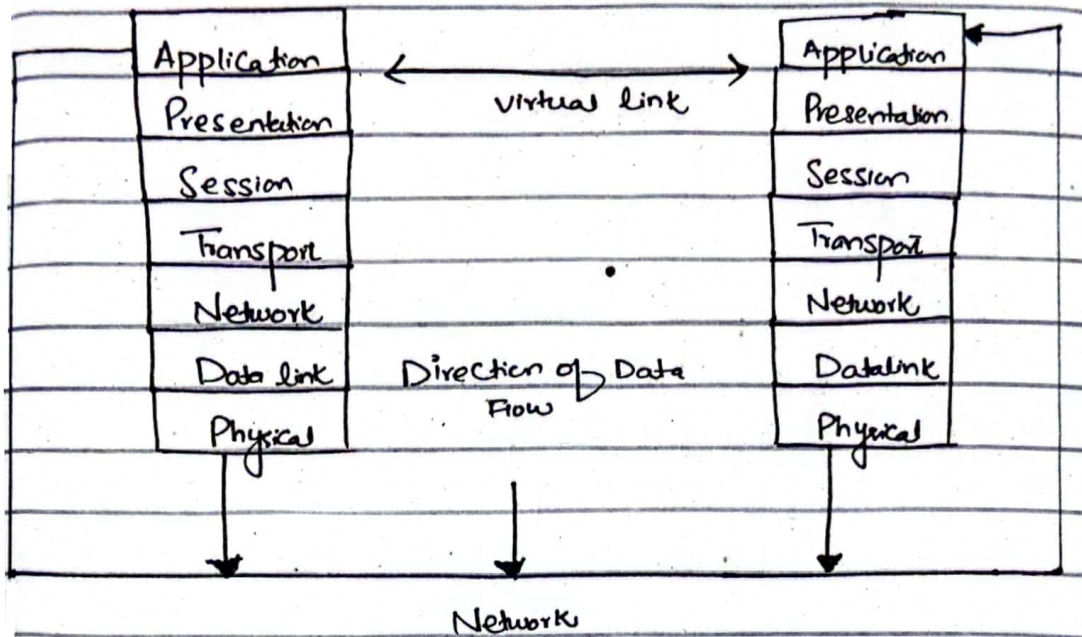 Application
Presentation
Session
Transport
Network
Data link
Physical
virtual link
Direction of Data
Flow
Application
Presentation
Session
Transport
Network
Datalink
Physical
Network